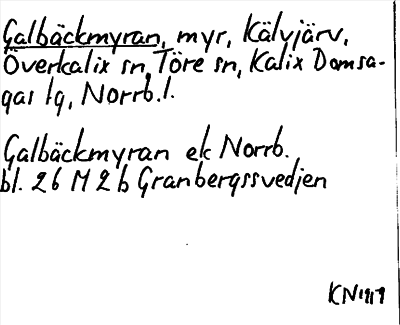 Galbäckmyran, myr, Kälvjärv,
Överkalix sn, Töre sn, Kalix Domsa-
gas tg, Norrb.l.
Galbäckmyran ek Norrb.
bl. 26 M 2 b Granbergssvedjen